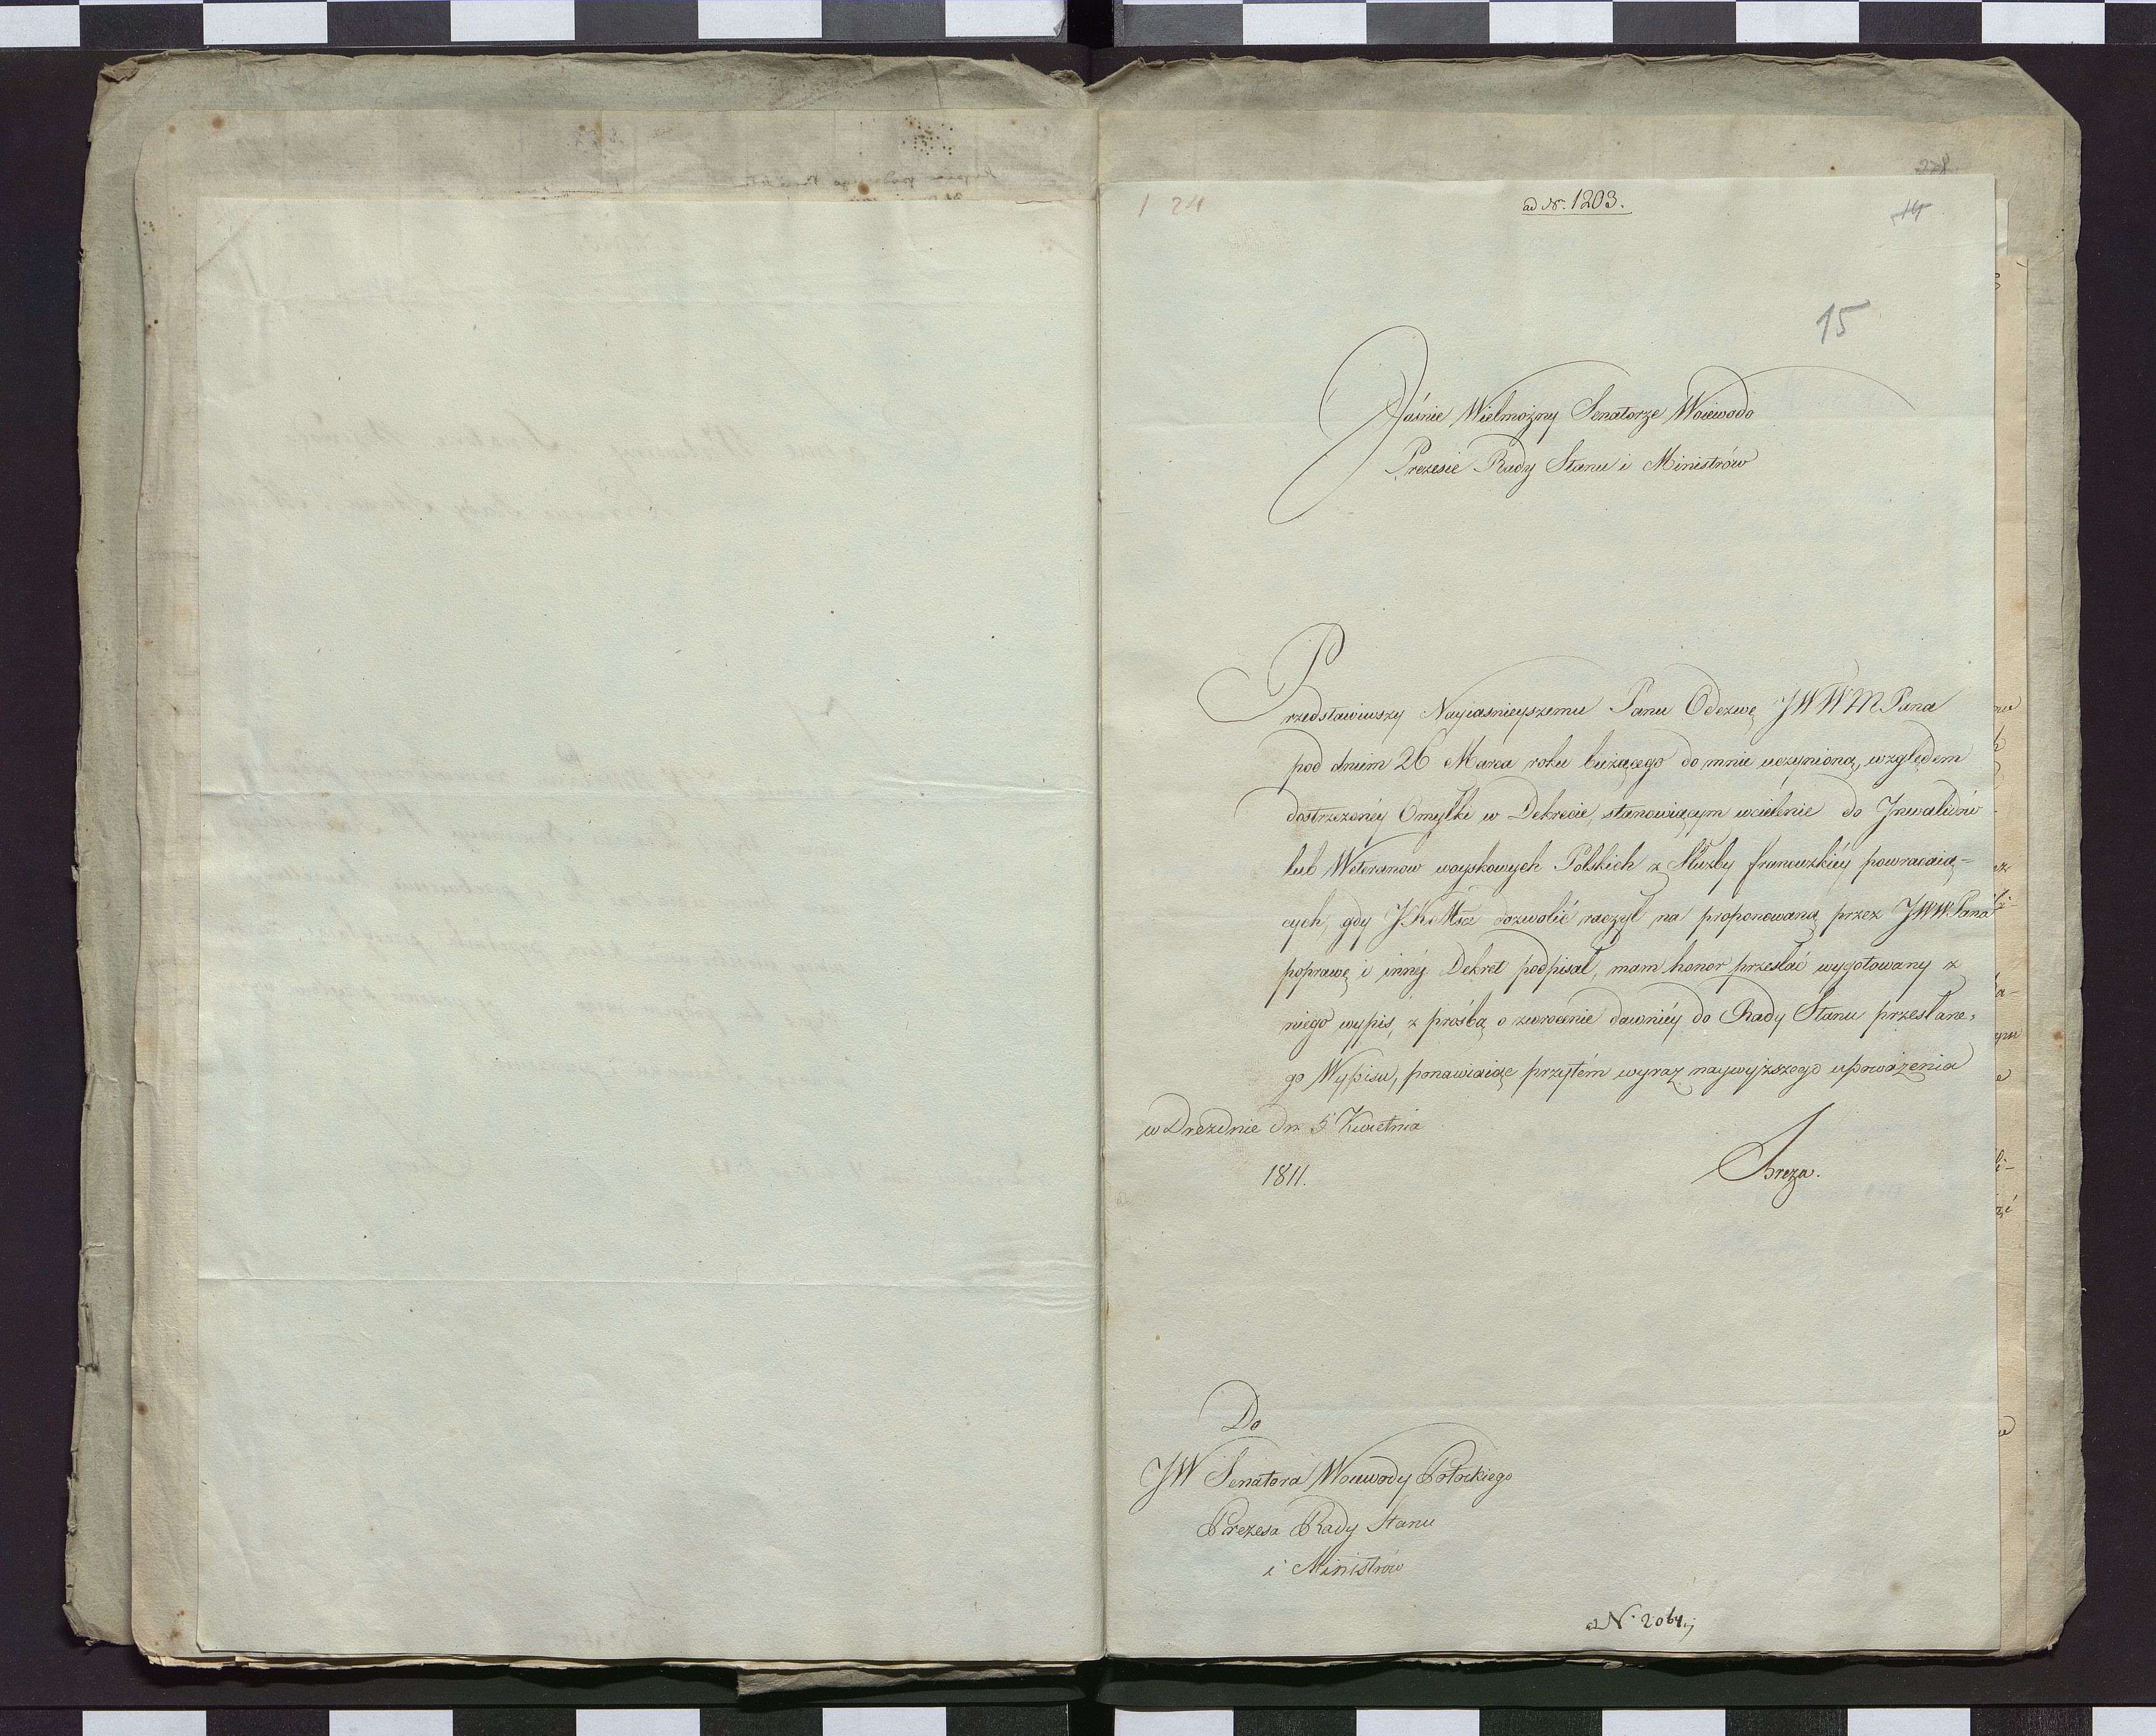 278
1 24
ad Nr. 1203.
14
15
Jaśnie Wielmożny Senatorze Woiewodo
Prezesie Rady Stanu i Ministrów
Przedstawiwszy Nayiasnieyszemu Panu Odezwę JWWMPana
pod dniem 26 Marca roku bieżącego do mnie uczynioną, względem
dostrzeżonéy Omyłki w Dekrecie, stanowiącym wcielenie do Inwalidów
lub Weteranow woyskowych Polskich z Służby francuzkiéy powracaią=
cych, gdy JKMść dozwolić raczył na proponowaną przez JWWPana
poprawę i inny Dekret podpisał, mam honor przesłać wygotowany z
niego wypis, z prośbą o zwrócenie dawniéy do Rady Stanu przesłane=
go Wypisu, ponawiaiąc przytém wyraz naywyższego upoważenia
w Dreznie dn. 5 Kwietnia
1811.
Breza.
Do
JW Senatora Woiewody Potockiego
Prezesa Rady Stanu
i Ministrów
ad N. 2064